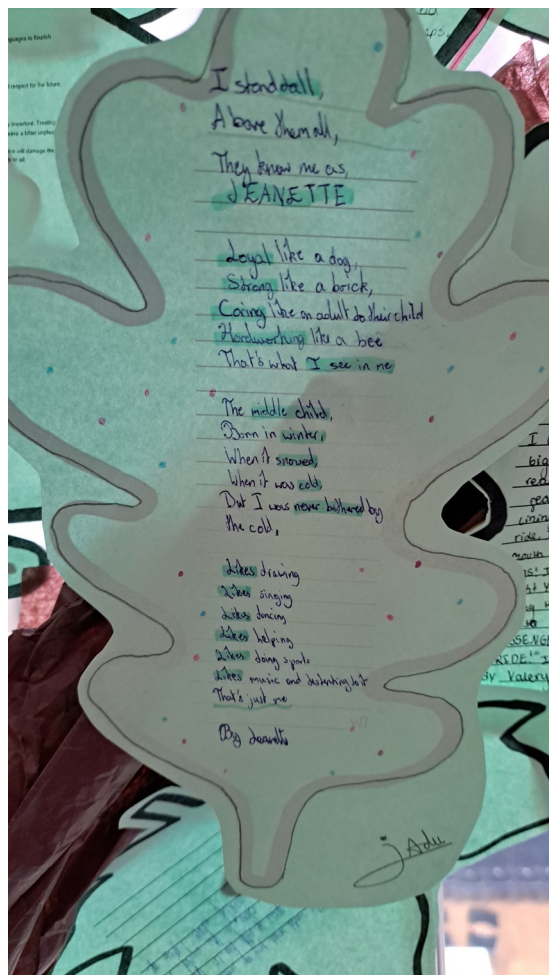 I stand tall,
Above them all,
They know me as,
JEANETTE
Loyal like a dog,
Strong like a brick,
Caring like an adult to their child
Hardworking like a bee
That's what I see in me
The middle child,
Born in winter,
When it snowed,
When it was cold,
But I was never bothered by
the cold,
Likes drawing
Likes singing
Likes dancing
Likes helping
Likes doing sports
Likes music and
That's just me
By Jeanette
j Adu
respect for the future.
RIDE!"
By Valery